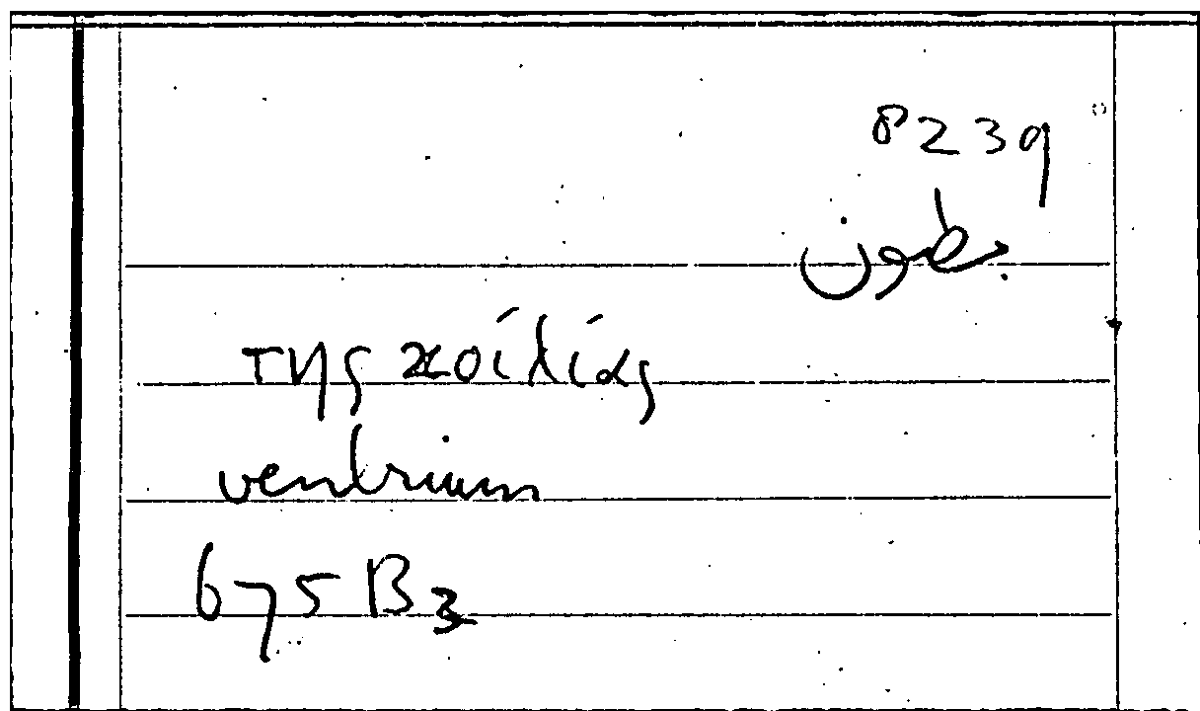 8239
بطون
της κοίλίας
ventrium
675 B3